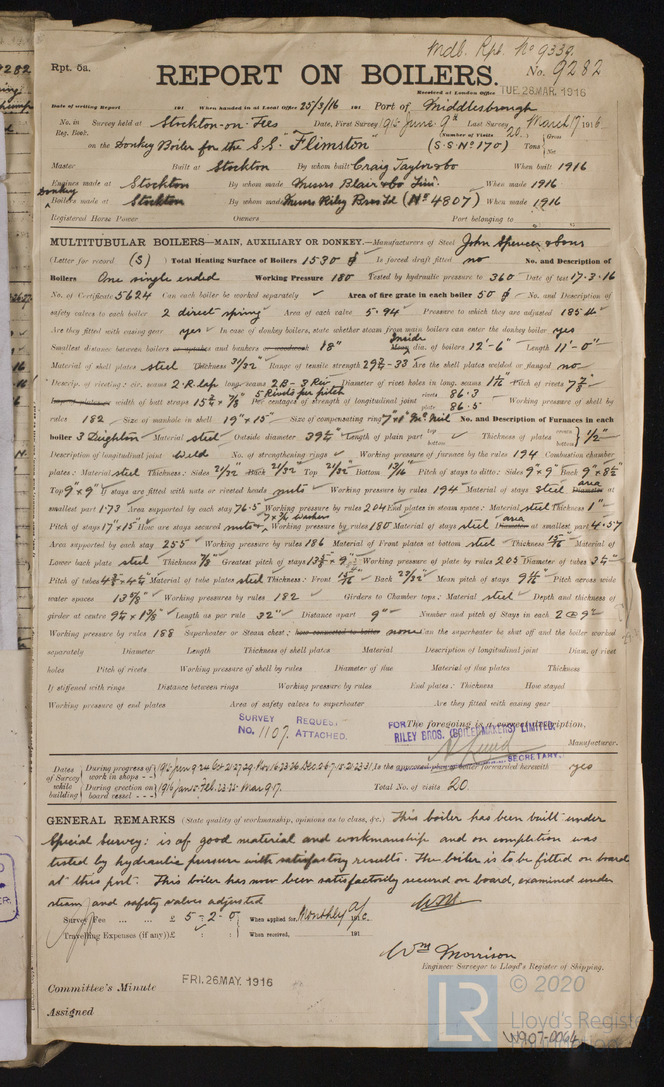 Mdb. Rpt. No 9339.
Rpt. 5a.
REPORT ON BOILERS.
No. 9282
Received at London Office TUE. 28 MAR. 1916
Date of writing Report 191 When handed in at Local Office 25/3/16 191 Port of Middlesbrough
No. in Survey held at Stockton-on-Tees Date, First Survey 1915 June 9th Last Survey March 17th 1916
Reg. Book. (Number of Visits 20) Gross
on the Donkey Boiler for the S.S. "Flimston" (S.S. No 170) Tons Net
Master Built at Stockton By whom built Craig Taylor & Co When built 1916
Engines made at Stockton By whom made Messrs Blair & Co Lim. When made 1916
Donkey
Boilers made at Stockton By whom made Messrs Riley Bros Ld (No 4807) When made 1916
Registered Horse Power Owners Port belonging to
MULTITUBULAR BOILERS—MAIN, AUXILIARY OR DONKEY.—Manufacturers of Steel John Spencer & Sons
(Letter for record (S)) Total Heating Surface of Boilers 1530 Is forced draft fitted no No. and Description of
Boilers One single ended Working Pressure 180 Tested by hydraulic pressure to 360 Date of test 17.3.16
No. of Certificate 5624 Can each boiler be worked separately ✓ Area of fire grate in each boiler 50 No. and Description of
safety valves to each boiler 2 direct spring Area of each valve 5.94 Pressure to which they are adjusted 185 lb
Are they fitted with easing gear yes In case of donkey boilers, state whether steam from main boilers can enter the donkey boiler yes
Smallest distance between boilers or uptakes and bunkers or woodwork 18" Inside Mean dia. of boilers 12'-6" Length 11'-0"
Material of shell plates steel Thickness 31/32" Range of tensile strength 29½-33 Are the shell plates welded or flanged no
Descrip. of riveting: cir. seams 2 R. lap long. seams 2 B-3 Riv Diameter of rivet holes in long. seams 1 1/16" Pitch of rivets 7⅜"
5 Rivets per pitch
Lap of plates or width of butt straps 15¾ x ⅞" Per centages of strength of longitudinal joint rivets 86.3 plate 86.5 Working pressure of shell by
rules 182 Size of manhole in shell 19" x 15" Size of compensating ring 7" x 1" McNeil No. and Description of Furnaces in each
boiler 3 Deighton Material steel Outside diameter 39¼" Length of plain part top bottom Thickness of plates crown bottom ½"
Description of longitudinal joint Weld No. of strengthening rings ✓ Working pressure of furnace by the rules 194 Combustion chamber
plates: Material steel Thickness: Sides 21/32" Back 21/32" Top 21/32" Bottom 13/16" Pitch of stays to ditto: Sides 9" x 9" Back 9" x 8½"
Top 9" x 9" If stays are fitted with nuts or riveted heads nuts Working pressure by rules 194 Material of stays steel area Diameter at
smallest part 1.73 Area supported by each stay 76.5 Working pressure by rules 204 End plates in steam space: Material steel Thickness 1"
Pitch of stays 17" x 15" How are stays secured nuts & washers Working pressure by rules 180 Material of stays steel area Diameter at smallest part 4.57
Area supported by each stay 255 Working pressure by rules 186 Material of Front plates at bottom steel Thickness 15/16" Material of
Lower back plate steel Thickness ⅞" Greatest pitch of stays 13½ x 9" Working pressure of plate by rules 205 Diameter of tubes 3¼"
Pitch of tubes 4¾ x 4½ Material of tube plates steel Thickness: Front 15/16" Back 23/32" Mean pitch of stays 9½" Pitch across wide
water spaces 13⅝" Working pressures by rules 182 Girders to Chamber tops: Material steel Depth and thickness of
girder at centre 9¼ x 1⅜" Length as per rule 32" Distance apart 9" Number and pitch of Stays in each 2 @ 9"
Working pressure by rules 188 Superheater or Steam chest: how connected to boiler none Can the superheater be shut off and the boiler worked
separately Diameter Length Thickness of shell plates Material Description of longitudinal joint Diam. of rivet
holes Pitch of rivets Working pressure of shell by rules Diameter of flue Material of flue plates Thickness
If stiffened with rings Distance between rings Working pressure by rules End plates: Thickness How stayed
Working pressure of end plates Area of safety valves to superheater Are they fitted with easing gear
SURVEY REQUEST
No. 1107. ATTACHED.
FOR The foregoing is a correct description,
RILEY BROS. (BOILERMAKERS) LIMITED.
SECRETARY. Manufacturer.
Dates of Survey while building During progress of work in shops - - 1915 Jun 9.24 Oct 21.27.29 Nov 16.23.26 Dec 2.6.7.15.21.23.31 Is the approved plan of boiler forwarded herewith yes
During erection on board vessel - - - 1916 Jan 15 Feb. 23.25 Mar 9.17. Total No. of visits 20
GENERAL REMARKS (State quality of workmanship, opinions as to class, &c.) This boiler has been built under
Special Survey: is of good material and workmanship and on completion was
tested by hydraulic pressure with satisfactory results. The boiler is to be fitted on board
at this port. This boiler has now been satisfactorily secured on board, examined under
steam and safety valves adjusted WM
Survey Fee ... ... £ 5-2-0 When applied for, Monthly a/c 1916.
Travelling Expenses (if any) £ : : When received, 191
Wm Morrison
Engineer Surveyor to Lloyd's Register of Shipping.
Committee's Minute FRI. 26 MAY. 1916
Assigned
LR © 2020
Lloyd's Register
Foundation
W907-0064